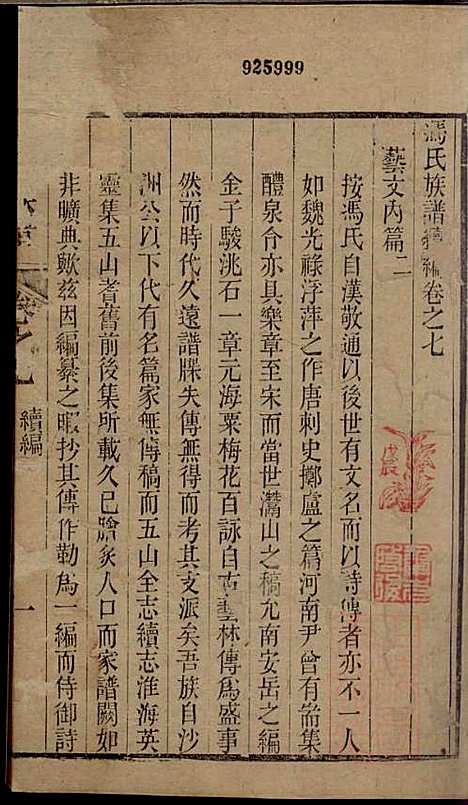 925999
馮氏族譜續編卷之七
藝文內篇二
按馮氏自漢敬通以後世有文名而以詩傳者亦不一人
如魏光祿浮萍之作唐刺史擲盧之篇河南尹曾有耑集
醴泉令亦具樂章至宋而當世灊山之稿允南安岳之編
金子駿洮石一章元海粟梅花百詠自古藝林傳為盛事
然而時代久遠譜牒失傳無得而考其支派矣吾族自沙
洲公以下代有名篇家無傳稿而五山全志續志淮海英
靈集五山耆舊前後集所載久已膾炙人口而家譜闕如
非曠典歟茲因編纂之暇抄其傳作勒為一編而侍御詩
卷之七
續編
一